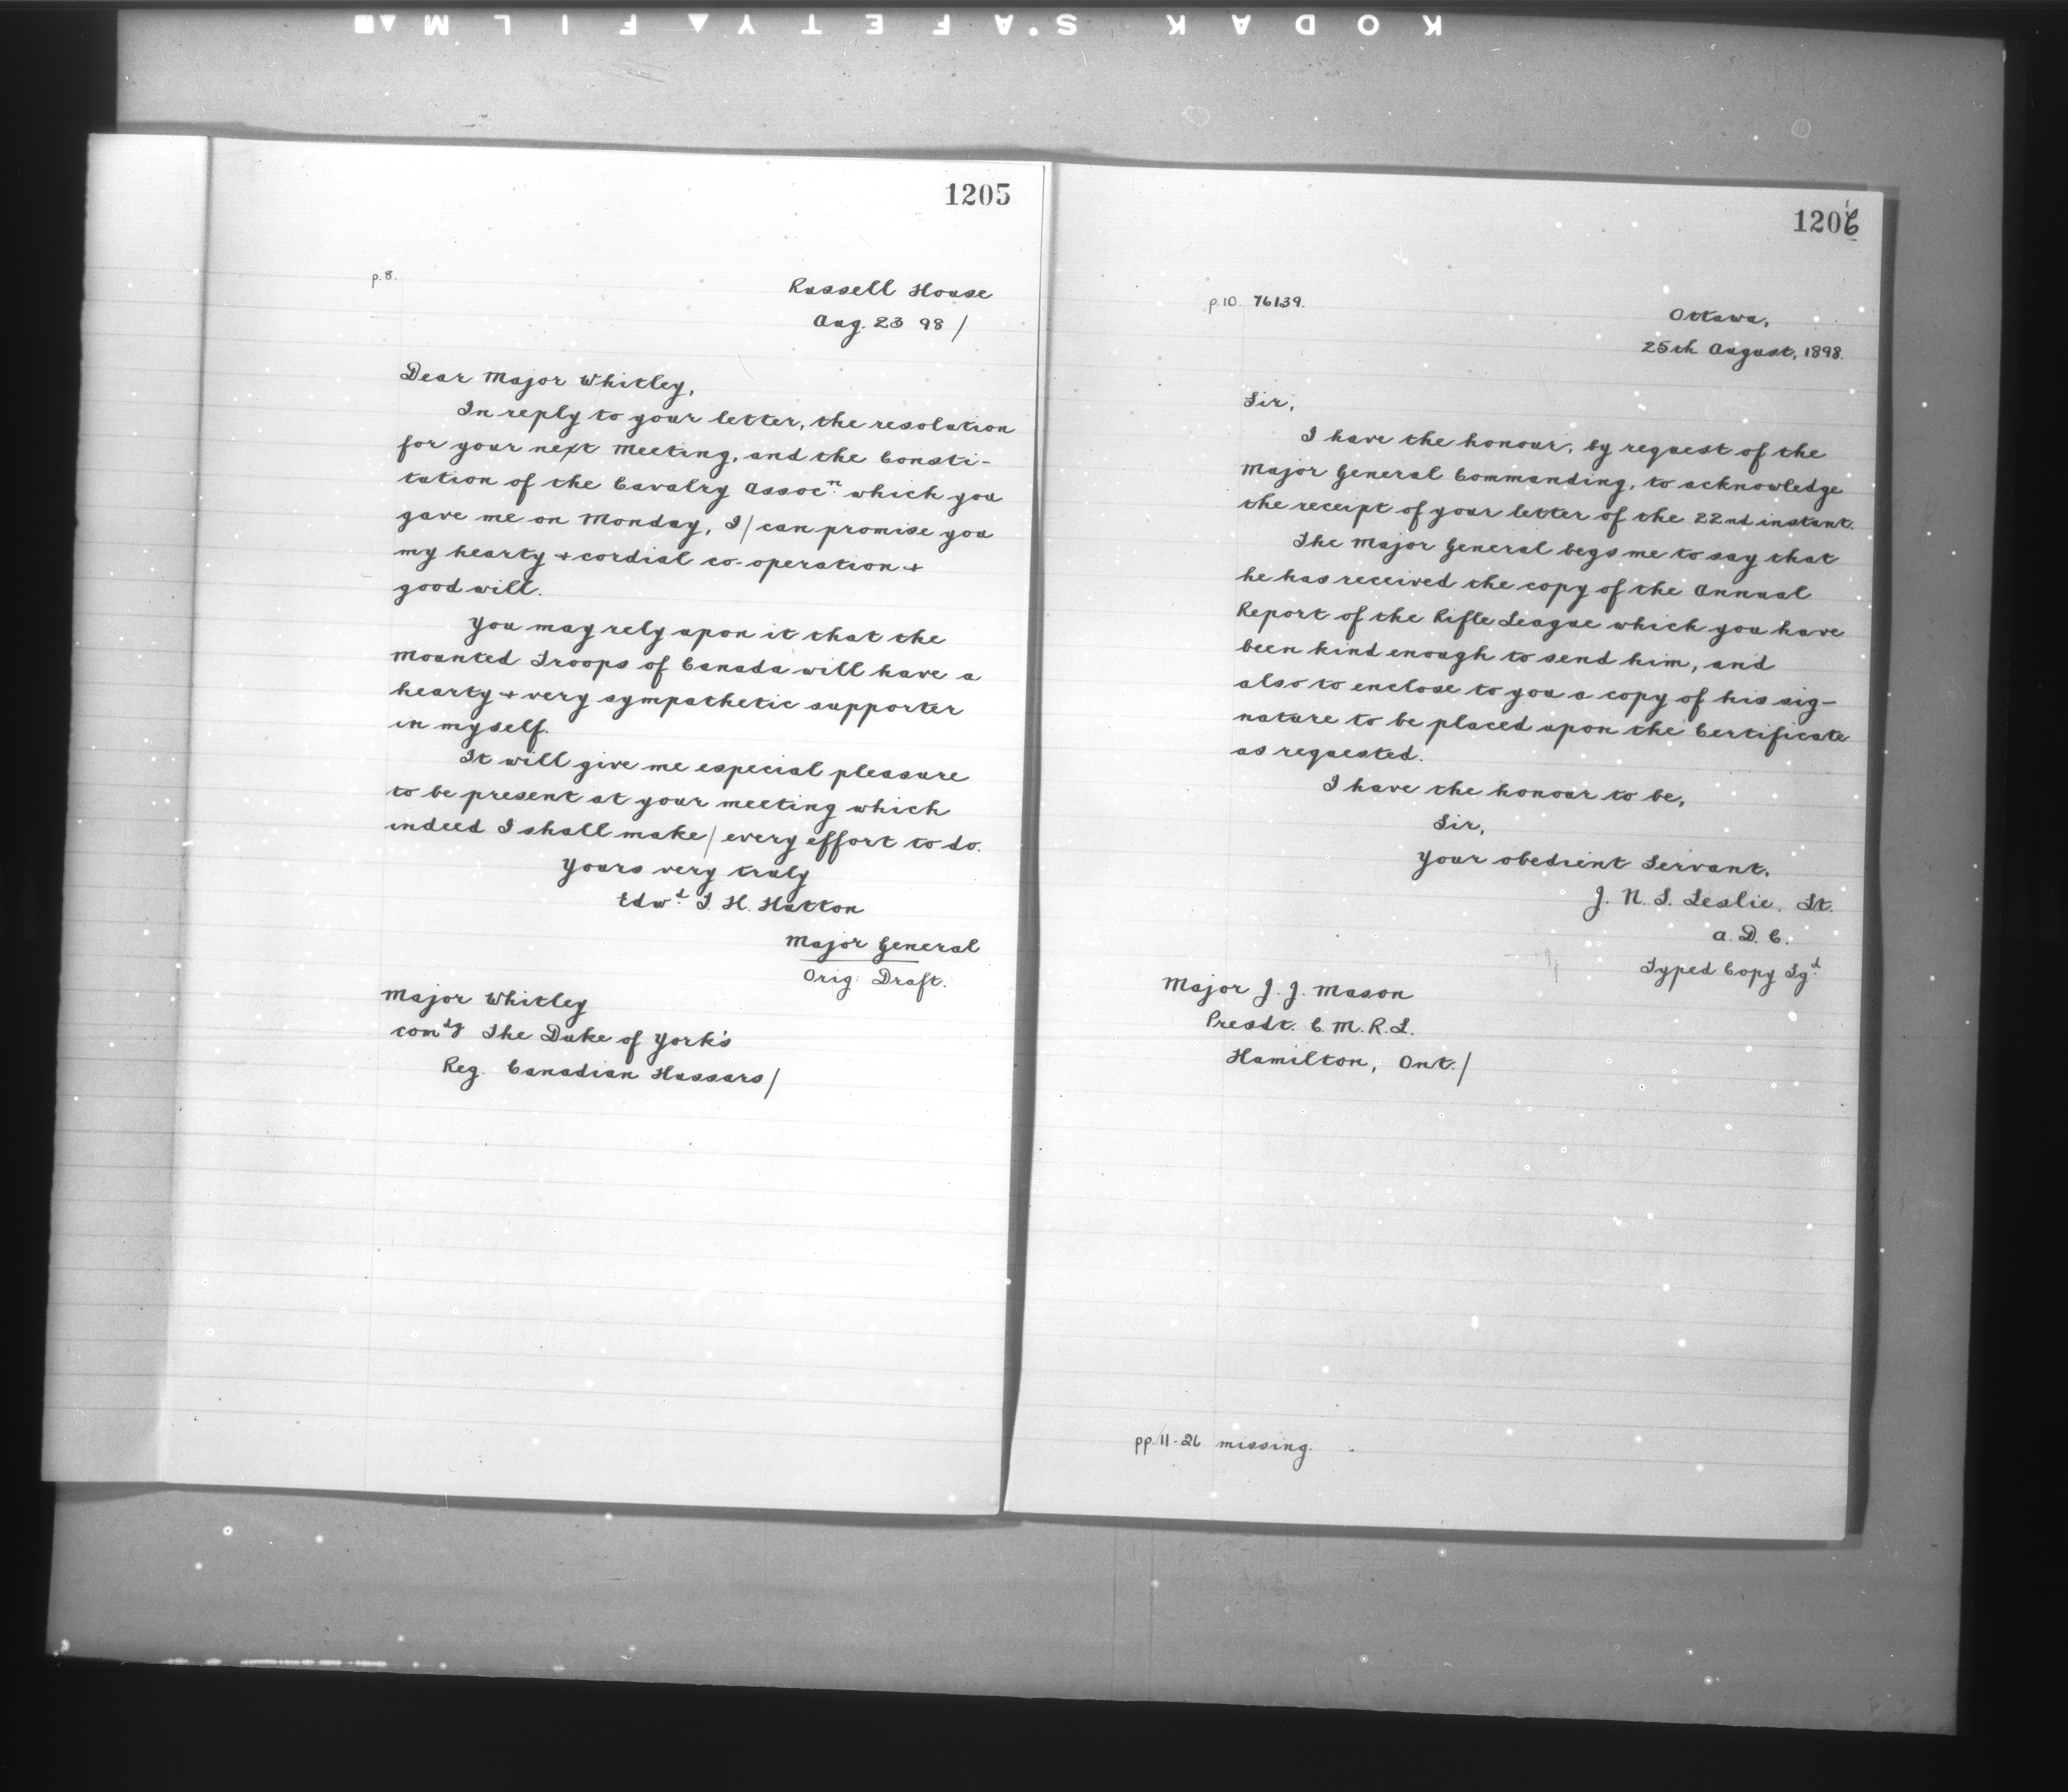 KODAK SAFETY FILM
1205
p.8.
Russell House
Aug. 23 98/
Dear Major Whitley,
In reply to your letter, the resolution
for your next Meeting, and the Consti-
tution of the Cavalry Assocⁿ. which you
gave me on Monday, I/can promise you
my hearty + cordial co-operation +
good will.
You may rely upon it that the
Mounted Troops of Canada will have a
hearty + very sympathetic supporter
in myself.
It will give me especial pleasure
to be present at your meeting which
indeed I shall make/every effort to do.
Yours very truly
Edwᵈ. T. H. Hutton
Major General
Orig: Draft.
Major Whitley
comᵈᵍ The Duke of York's
Reg. Canadian Hussars/
1206
p.10. 76139.
Ottawa,
25th August, 1898.
Sir,
I have the honour, by request of the
Major General Commanding, to acknowledge
the receipt of your letter of the 22nd instant.
The Major General begs me to say that
he has received the copy of the Annual
Report of the Rifle League which you have
been kind enough to send him, and
also to enclose to you a copy of his sig-
nature to be placed upon the Certificate
as requested.
I have the honour to be,
Sir,
Your obedient Servant,
J. N. S. Leslie. Lt.
A. D. C.
Typed Copy Sgᵈ.
Major J. J. Mason
Presdt. C. M. R. L.
Hamilton, Ont./
pp. 11-26 missing.